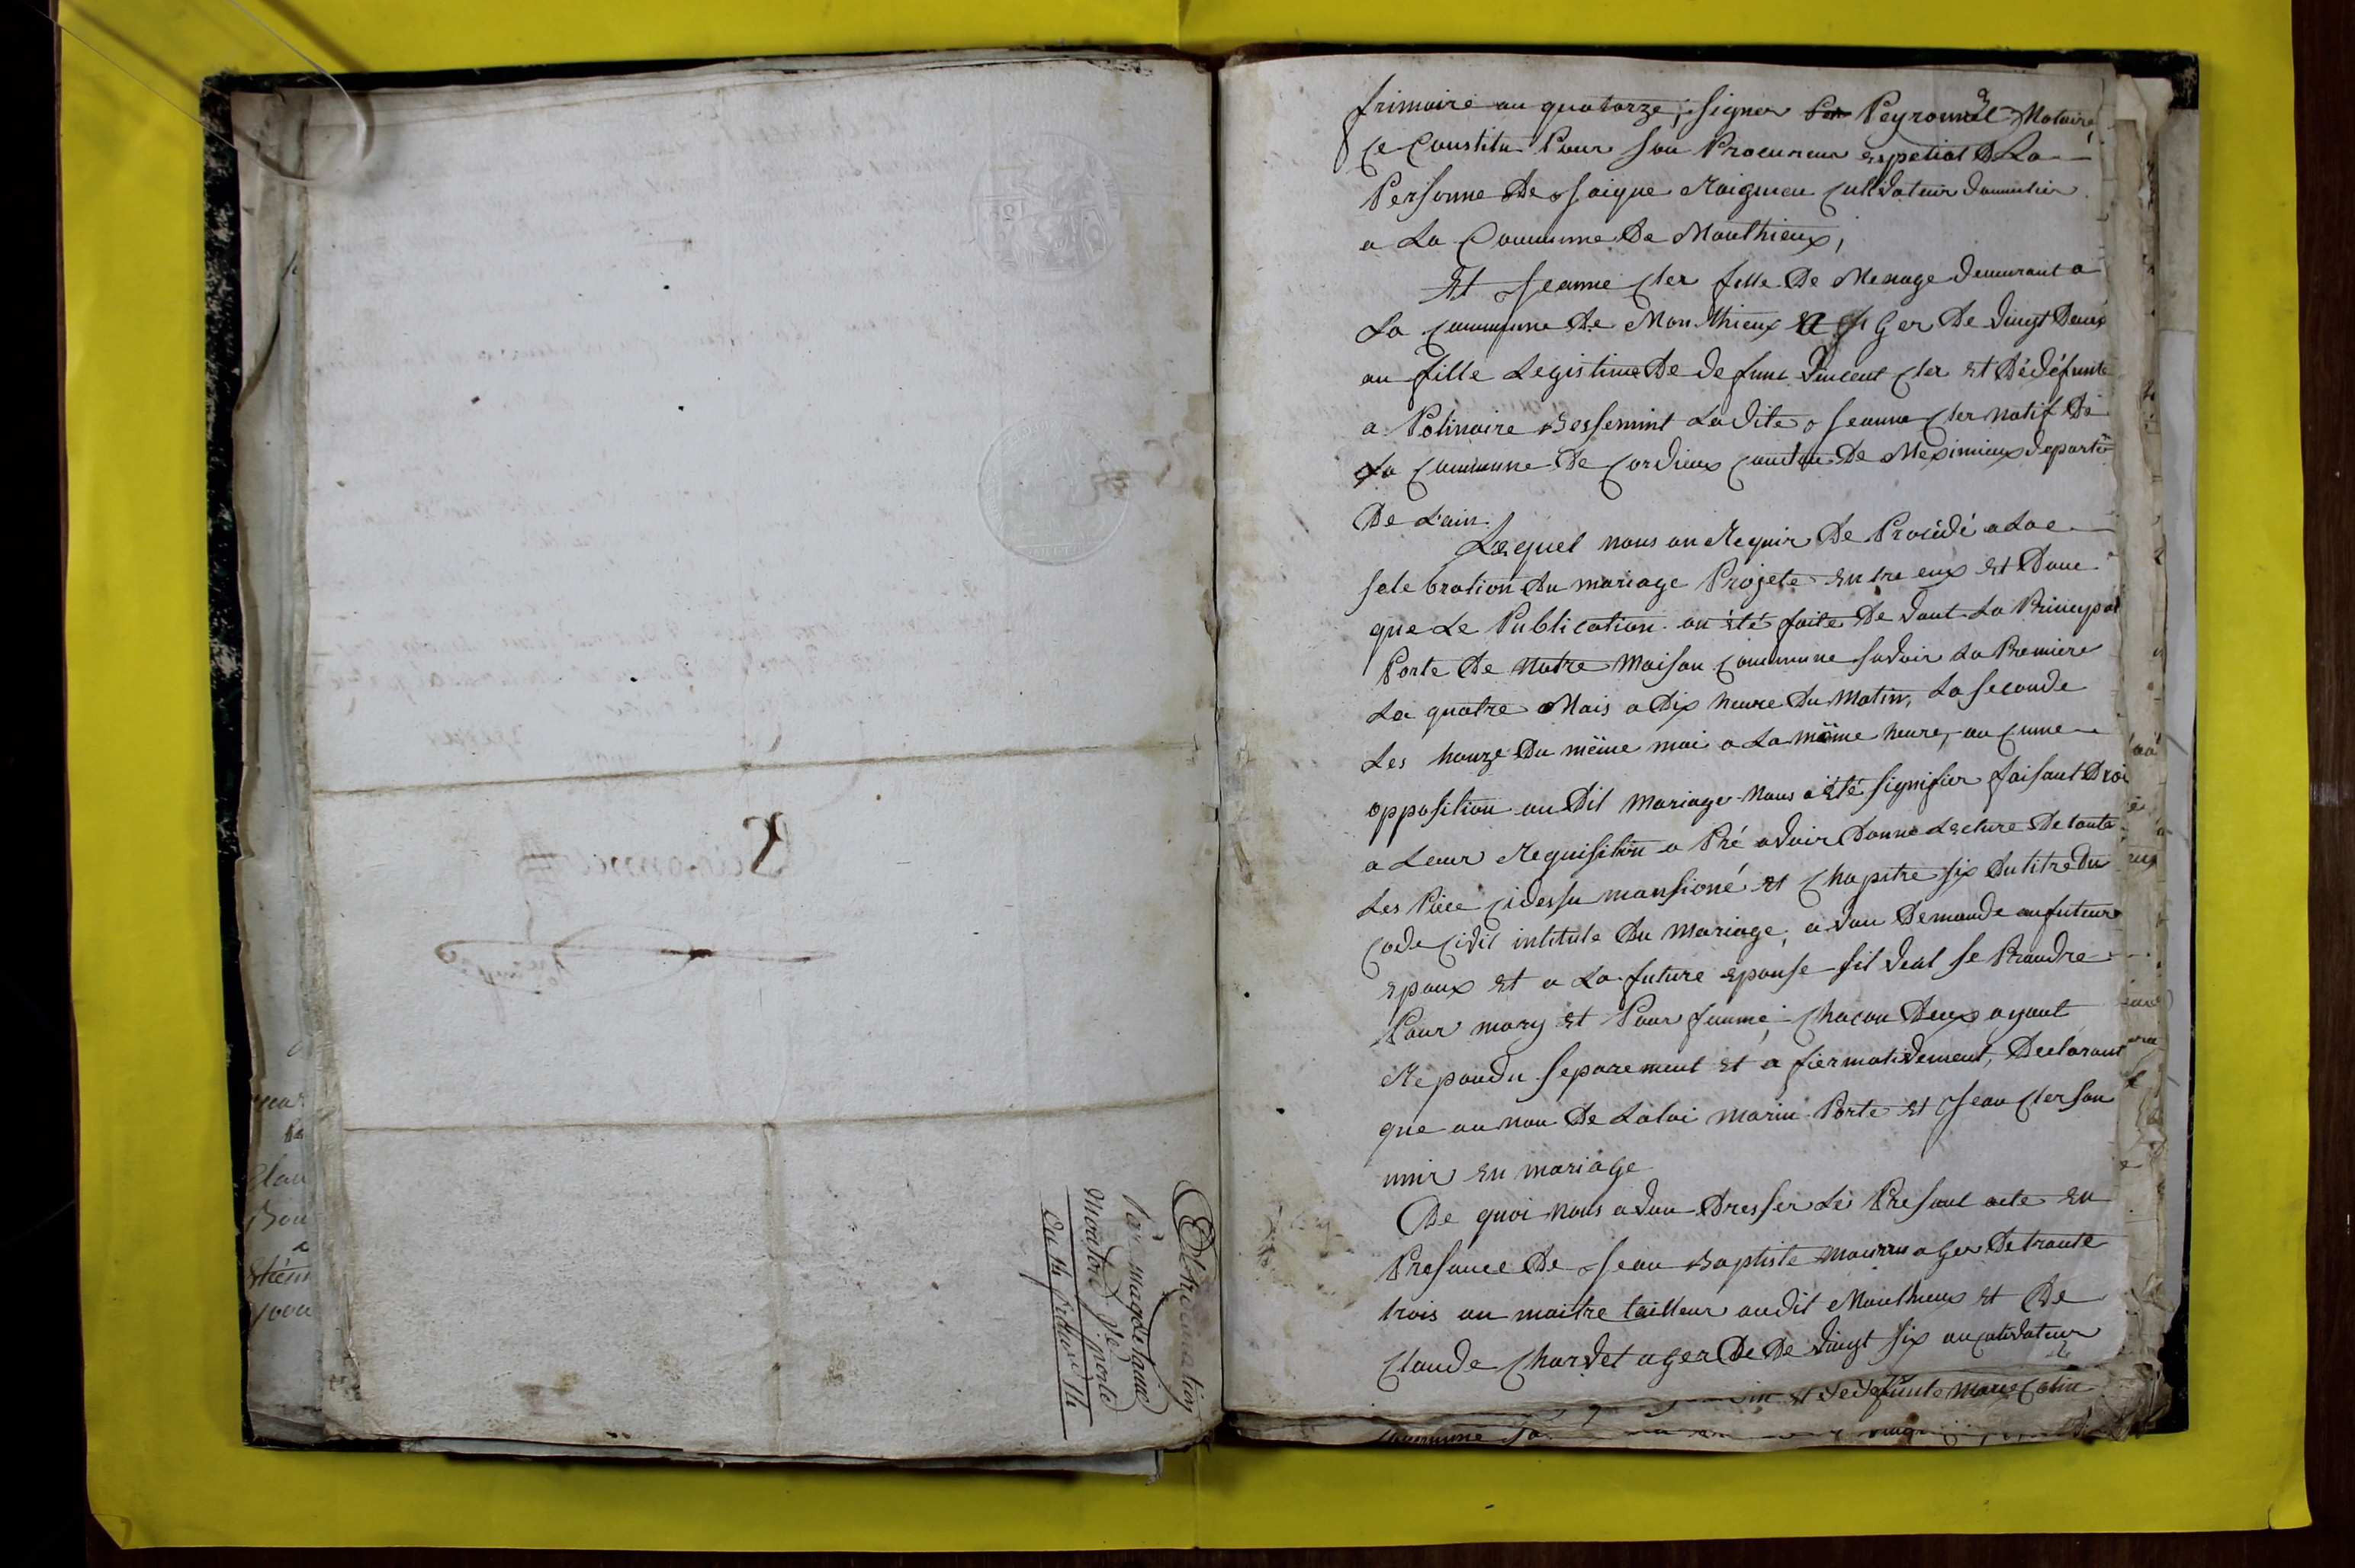 Peironnet
Procuration
Par magdelaine
Montbrd v.e ponte
du 14 frim.re 14
frimaire an quatorze, signer Peyronnet Notaire
Ce Constitu Pour son Procureur espetial De La
Personne De Jaique Raigneu Cultivateur domicilier
a La Commune De Monthieux,
Et Jeanne Cler fille De Menage demurant a
La Commune De Monthieux a Ger De Vingt Deux
an fille Legistime De defunt Vincent Cler Et Dédéfunte
a Polinaire Bessemint Ladite Jeanne Cler natif De
La Commune De Cordieux Canton De Meximieux departe
De L'ain.
Lequel nous on Requir De Procédé a La
selebration Du mariage Projete Entre eux Et Donc
que Le Publication on été faite De vant La Principal
Porte De Notre Maison Commune savoir La Premiere
La quatre Mais a Dix heure Du Matin, La seconde
Les honze Du même mai a La même heure, aucune
opposition au Dit Mariage Nous a Eté signifier faisant Droi
a Leur Requisition a Pré avoir Donné Lecture De toute
Les Pièce ci dessu mansioné Et Chapitre six Du titre Du
Code Civil intitule Du Mariage, a von Demande au futeur
Epoux Et a La future Epouse sil veal se Prandre
Pour mary Et Pour famme, Chacon Deux ayant
Repondu separement Et a fiermativement, Declarons
que au non De La loi Marin Porte Et Jean Cler son
unir En mariage
De quoi Nous avon Dresser Le Presant acte En
Presance De Jean Baptiste Mournu a Ger De trante
trois an maitre tailleur audit Monthieux Et De
Claude Chardet a Ger De De Vingt six an cutivateur
et dedefunte marie Colin
Commune